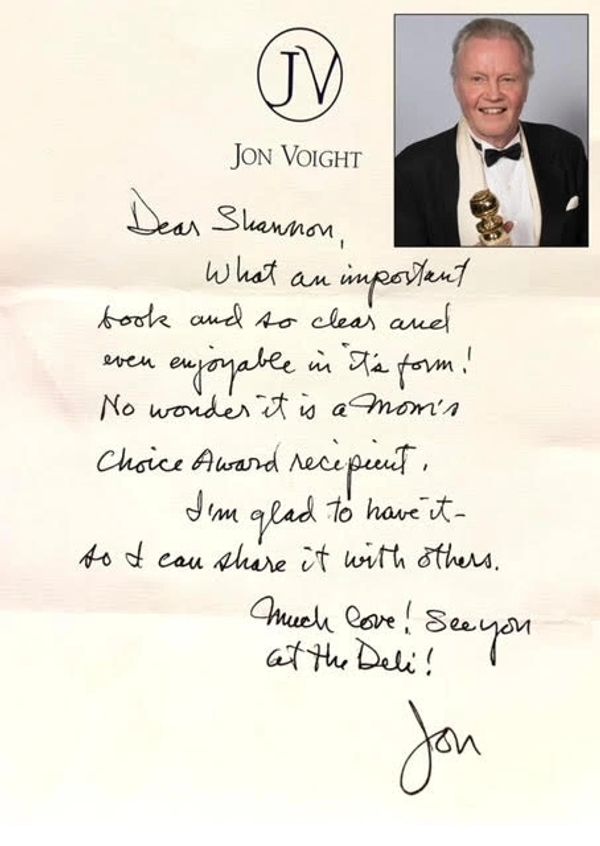 JV
JON VOIGHT
Dear Shannon,
What an important
book and so clear and
even enjoyable in it's form!
No wonder it is a Mom's
Choice Award recipient.
I'm glad to have it-
so I can share it with others.
Much love! See you
at the Deli!
Jon